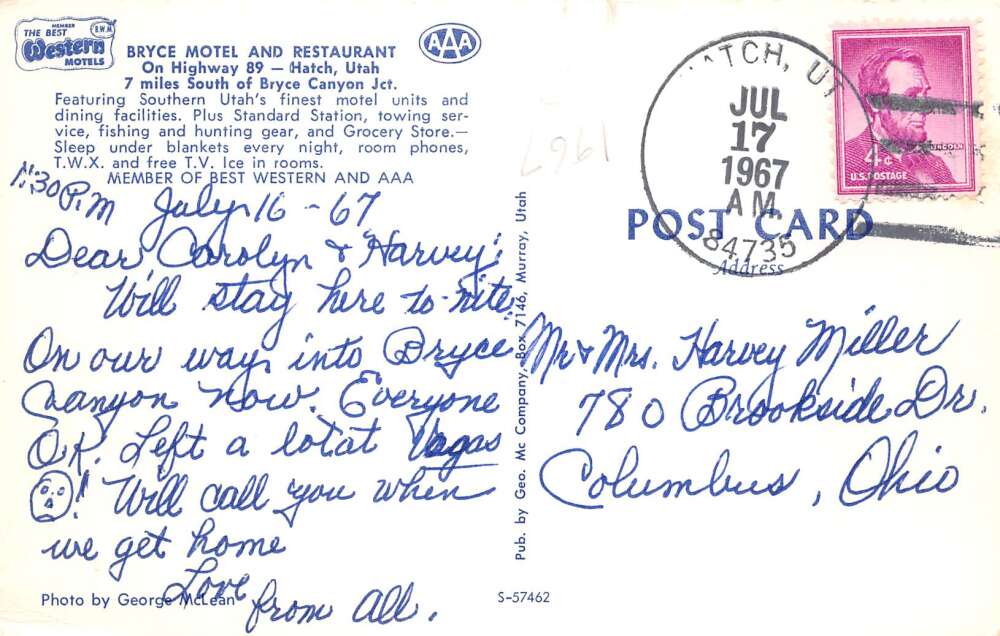 MEMBER
THE BEST
B.W.M.
Western
MOTELS
AAA
BRYCE MOTEL AND RESTAURANT
On Highway 89 — Hatch, Utah
7 miles South of Bryce Canyon Jct.
Featuring Southern Utah's finest motel units and
dining facilities. Plus Standard Station, towing ser-
vice, fishing and hunting gear, and Grocery Store.—
Sleep under blankets every night, room phones,
T.W.X. and free T.V. Ice in rooms.
MEMBER OF BEST WESTERN AND AAA
11:30 P.M July 16 - 67
Dear Carolyn & Harvey:
Will stay here to-nite.
On our way into Bryce
Canyon now. Everyone
OK. Left a lot at Vagas
! Will call you when
we get home
Love
from all.
Photo by George McLean
S-57462
Pub. by Geo. Mc Company, Box 7146, Murray, Utah
1967
HATCH, UT
JUL
17
1967
A M.
84735
LINCOLN
4¢
U.S. POSTAGE
POST CARD
Address
Mr & Mrs. Harvey Miller
780 Brookside Dr.
Columbus, Ohio